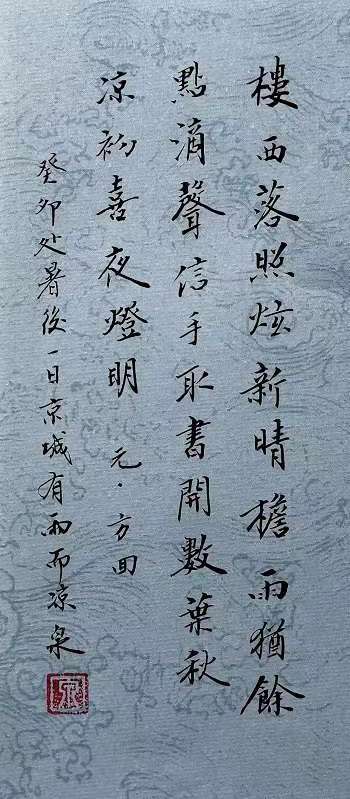 樓西落照炫新晴檐雨猶餘
點滴聲信手取書開數葉秋
凉初喜夜燈明 元·方回
癸卯处暑後一日京城有雨而凉泉